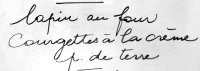 lapin au four
Courgettes à la crème
p. de terre